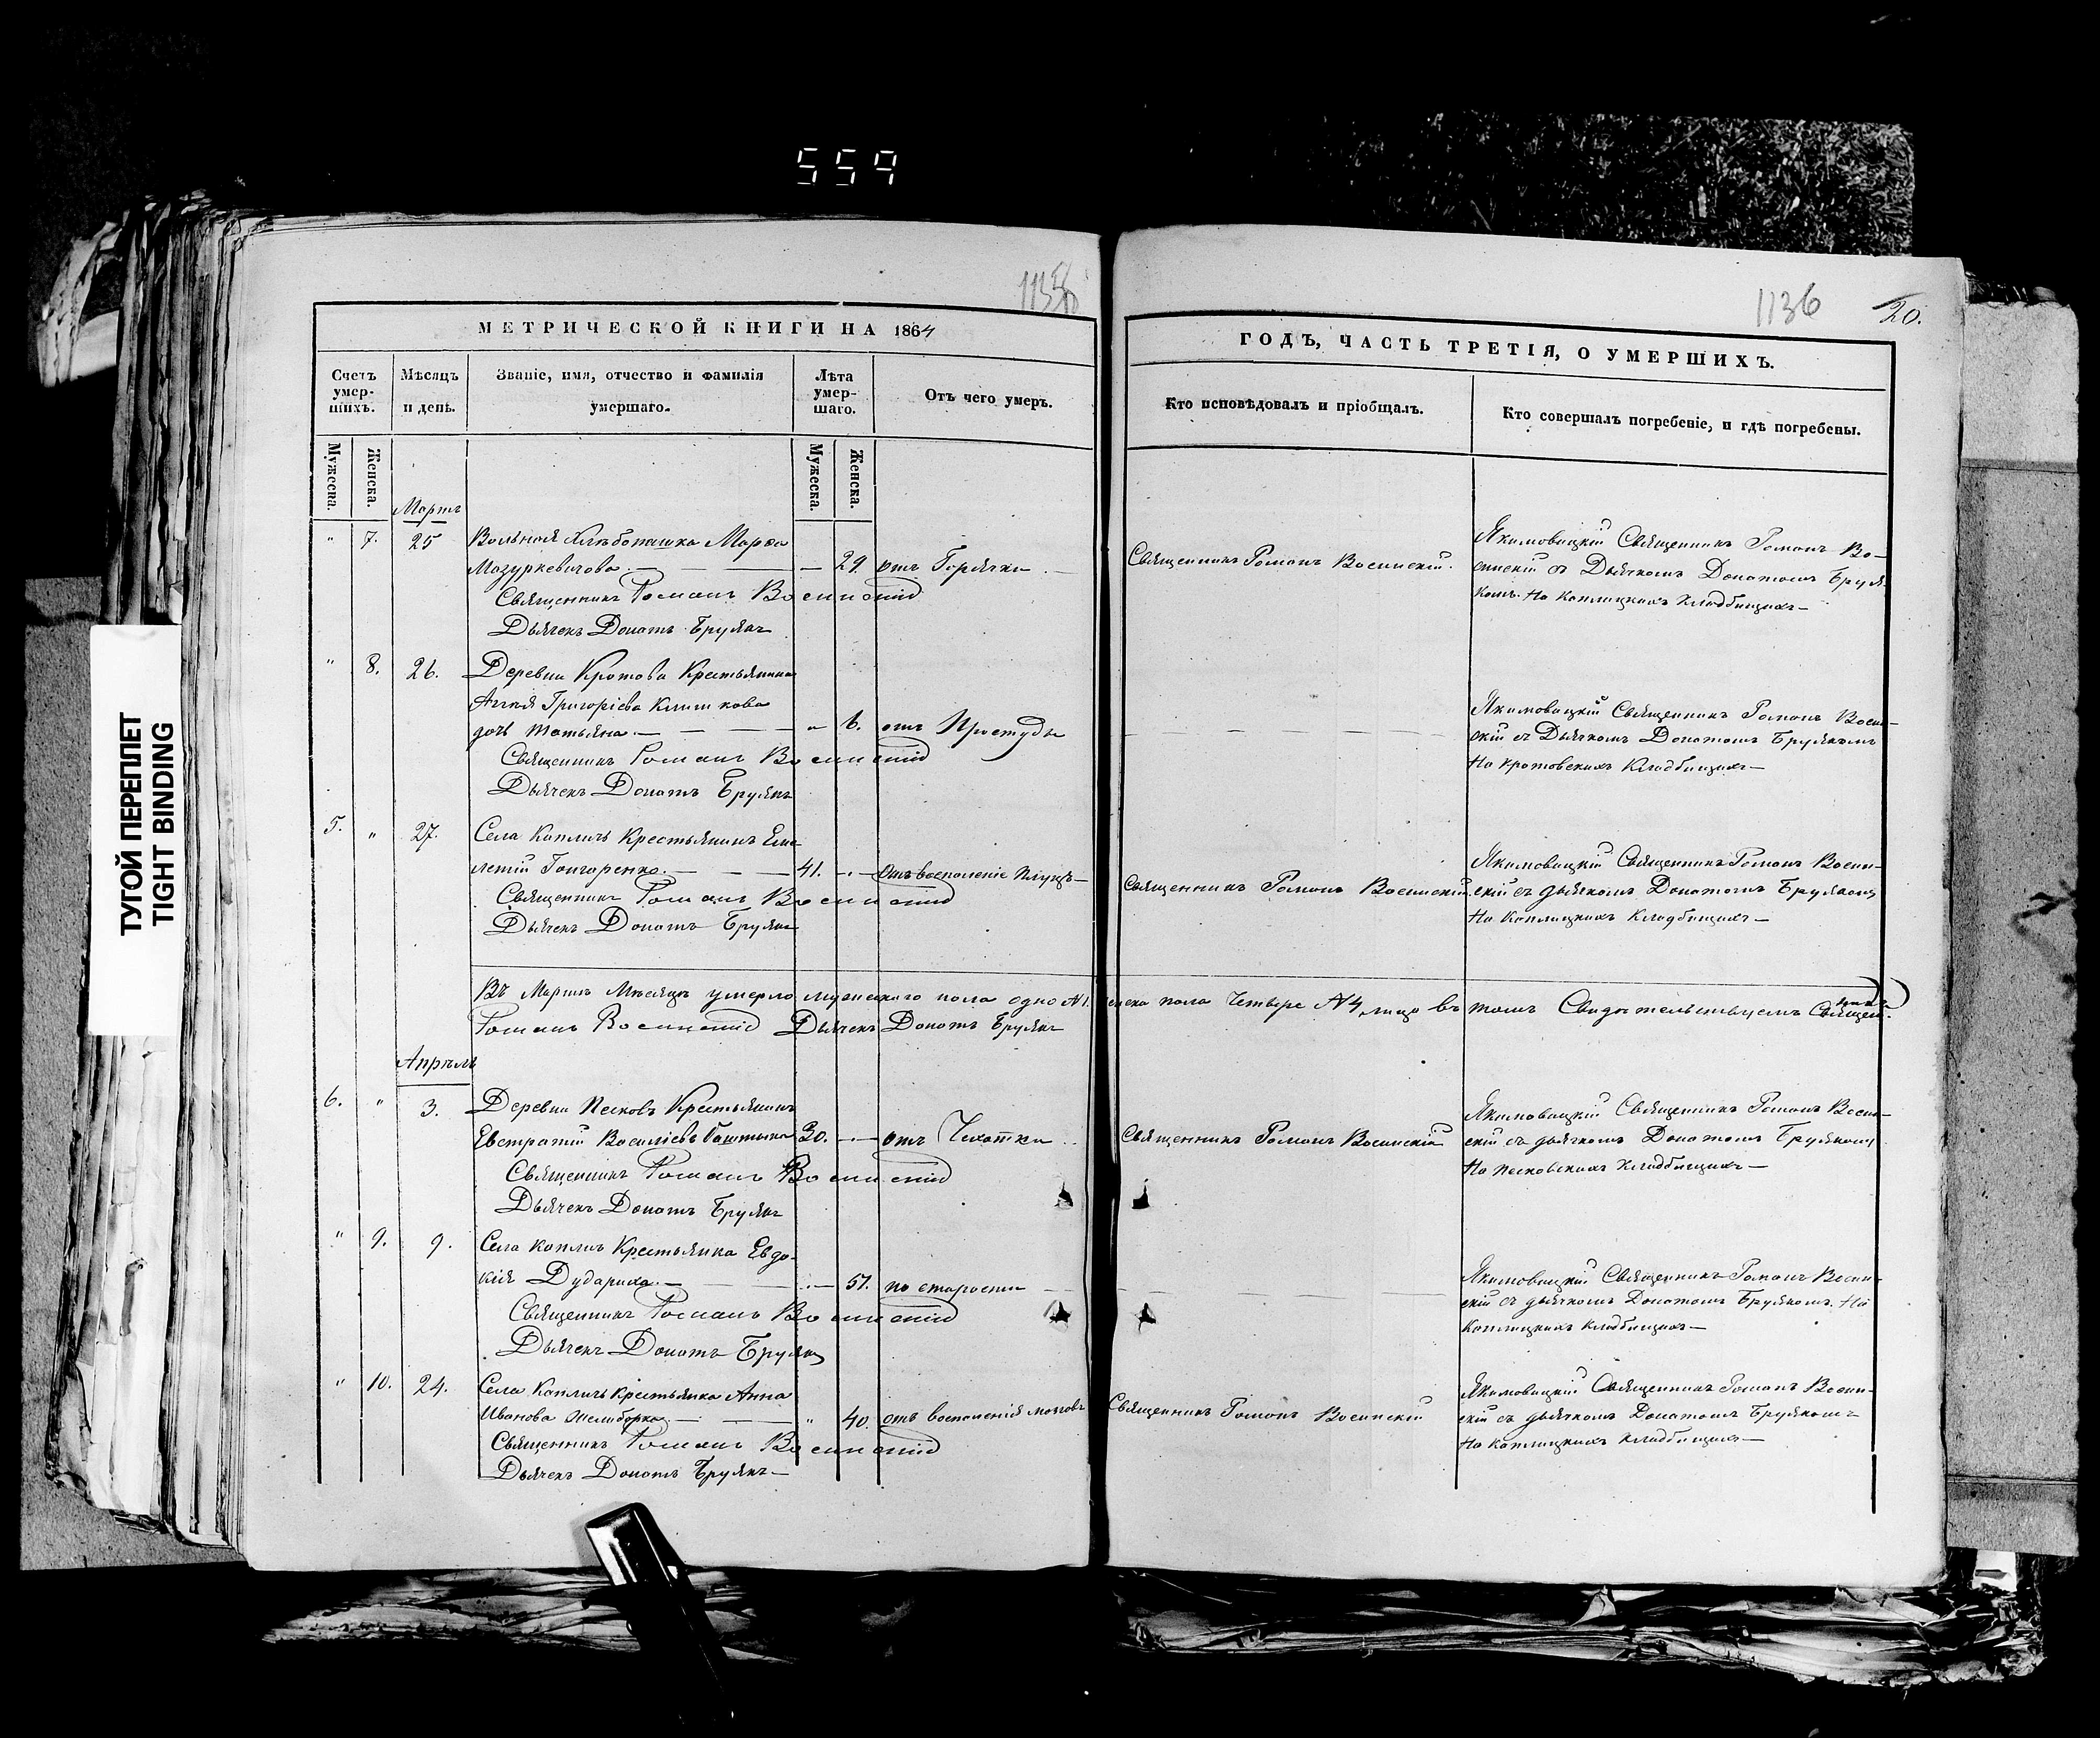 559
ТУГОЙ ПЕРЕПЛЕТ
TIGHT BINDING
1136
20.
МЕТРИЧЕСКОЙ КНИГИ НА 1864
ГОДЪ, ЧАСТЬ ТРЕТІЯ, О УМЕРШИХЪ.
Счетъ умершихъ.
Мѣсяцъ и день.
Званіе, имя, отчество и фамилія умершаго.
Лѣта умершаго.
Отъ чего умеръ.
Кто исповѣдовалъ и пріобщалъ.
Кто совершалъ погребеніе, и гдѣ погребены.
Мужеска.
Женска.
Мужеска.
Женска.
Мартъ
" 7. 25 Вольная хлѣбопашка Марѳа
Мазуркевичова — 29. отъ Горячки
Священникъ Романъ Восинскій
Дьячекъ Донатъ Брулякъ
Священникъ Романъ Восинскій.
Якимовицкій Священникъ Романъ Во-
синскій съ Дьячкомъ Донатомъ Бруля
комъ. На Каплицкихъ Кладбищахъ —
" 8. 26. Деревни Кротова Крестьянина
Григоріева
дочь Татьяна. — " 6. отъ Простуды
Священникъ Романъ Восинскій
Дьячекъ Донатъ Брулякъ
Якимовицкій Священникъ Романъ Восин-
скій съ Дьячкомъ Донатомъ Брулякомъ
На Кротовскихъ Кладбищахъ —
5. " 27. Села Капличъ Крестьянинъ Еме
летій Гонгоренко. — 41. — отъ воспаленіе
Священникъ Романъ Восинскій
Дьячекъ Донатъ Брулякъ
Священникъ Романъ Восинскій.
Якимовицкій Священникъ Романъ Восин-
скій съ дьячкомъ Донатомъ Брулякомъ
На Каплицкихъ Кладбищахъ —
Въ Мартѣ Мѣсяцѣ умерло мужескаго пола одно №1. женска пола Четыре №4 лица въ томъ Свидѣтельствуемъ Священникъ
Романъ Восинскій Дьячекъ Донатъ Брулякъ
Апрѣль
6. " 3. Деревни Песковъ Крестьянинъ
Евстратій Василіевъ 30. — отъ Чехотки
Священникъ Романъ Восинскій
Дьячекъ Донатъ Брулякъ
Священникъ Романъ Восинскій
Якимовицкій Священникъ Романъ Восин-
скій съ дьячкомъ Донатомъ Брулякомъ
На Песковскихъ Кладбищахъ —
" 9. 9. Села Капличъ Крестьянка Евдо-
кія Дудариха. — 57. по старости
Священникъ Романъ Восинскій
Дьячекъ Донатъ Брулякъ
Якимовицкій Священникъ Романъ Восин-
скій съ дьячкомъ Донатомъ Брулякомъ. На
Каплицкихъ Кладбищахъ —
" 10. 24. Села Капличъ Крестьянка Анна
Иванова " 40. отъ воспаленія мозговъ
Священникъ Романъ Восинскій
Дьячекъ Донатъ Брулякъ —
Священникъ Романъ Восинскій
Якимовицкій Священникъ Романъ Восин-
скій съ дьячкомъ Донатомъ Брулякомъ
На Каплицкихъ Кладбищахъ —